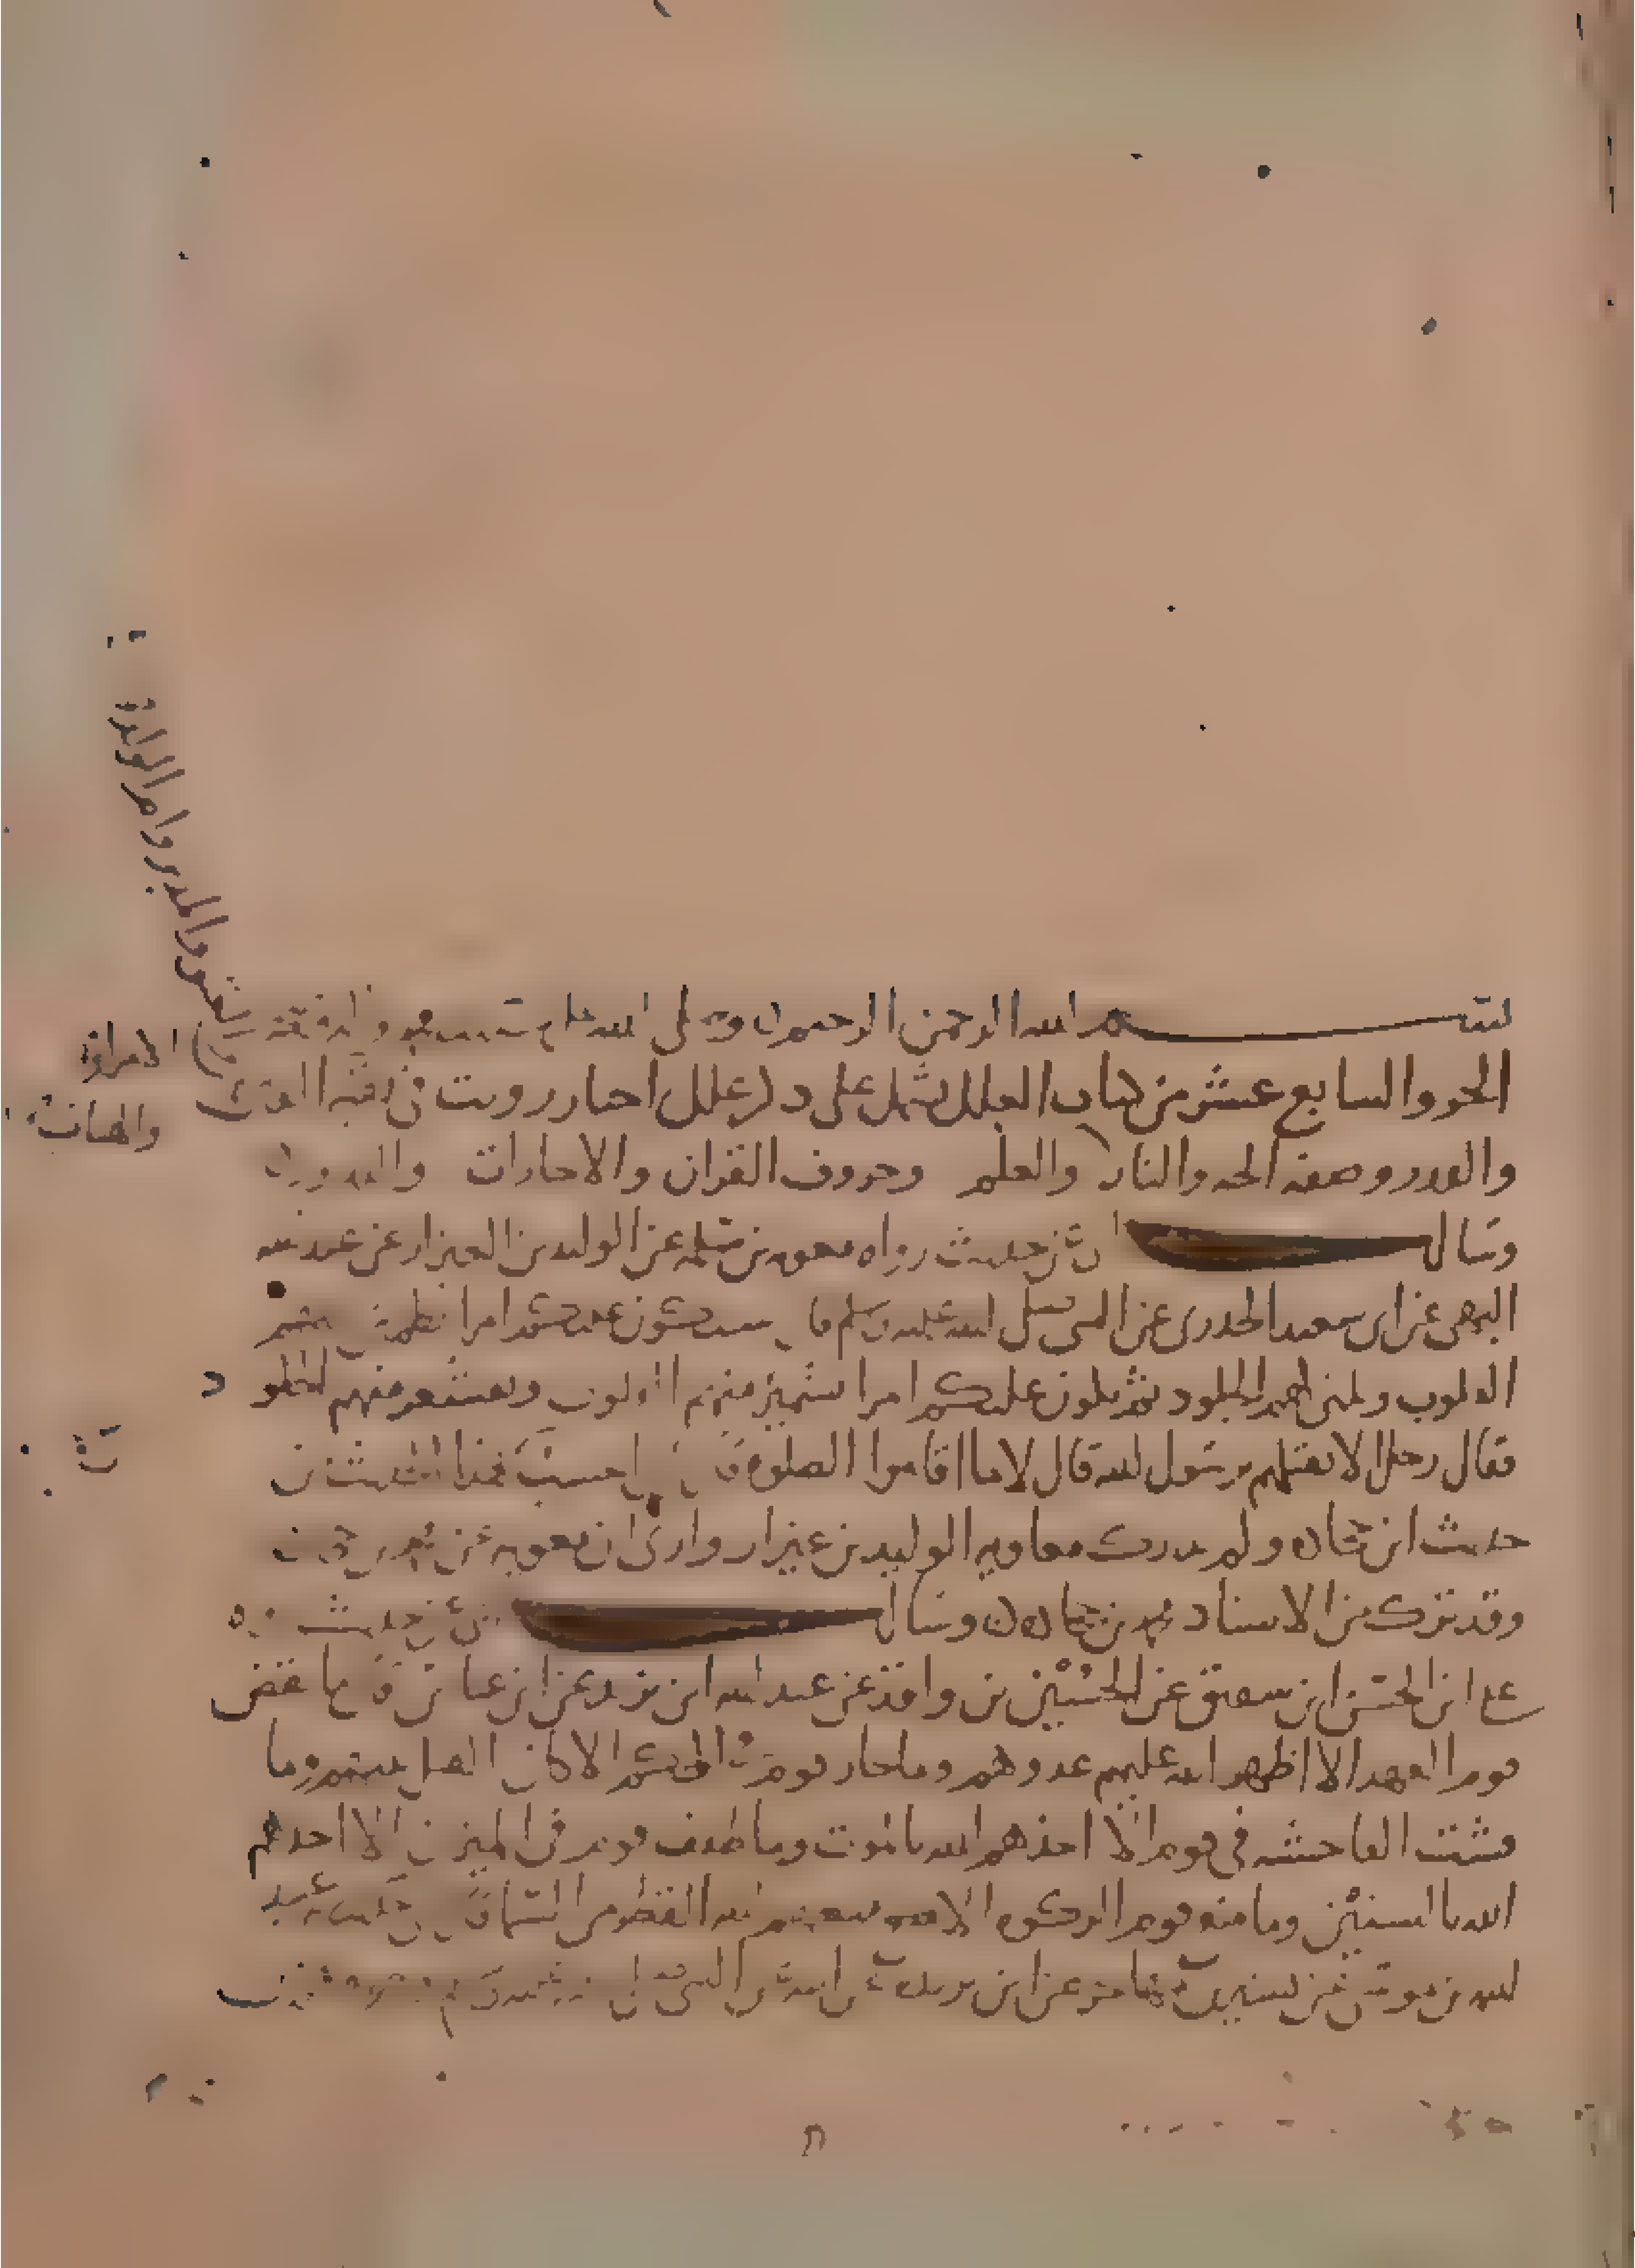 بسم الله الرحمن الرحيم وصلى الله على
الجزو السابع عشر من كتاب العلل يشتمل على ذكر علل اخبار رويت في
والقدر وصفه الجنه والنار والعلم وحروف القران والاجارات والنذور
وسالت ابي عن حديث رواه معويه بن سلمه عن الوليد بن العيزار عن عبد الله
البهي عن ابي سعيد الخدري عن النبي صلى الله عليه وسلم قال سيكون عليكم امرا تطمئن اليهم
القلوب وتلين لهم الجلود ثم يكون عليكم امرا تشمئز منهم القلوب وتقشعر منهم الجلود
فقال رجل الا نقتلهم يرسول الله قال لا ما اقاموا الصلوه قال ابي احسب هذا الحديث من
حديث ابن جحاده ولم يدرك معاويه الوليد بن عيزار وارى ان معويه عن محمد بن
وقد ترك من الاسناد محمد بن جحاده وسالت ابي عن حديث رواه
علي ابن الحسن ابن سقيق عن الحسين بن واقد عن عبد الله ابن بريده عن ابن عباس قال ما نقض
قوم العهد الا اظهر الله عليهم عدوهم وما جار قوم في الحكم الا كان القتل بينهم وما
فشت الفاحشه في قوم الا اخذهم الله بالموت وما طفف قوم في الميزان الا اخذهم
الله بالسنين وما منع قوم الزكوه الا منعهم الله القطر من السما عبيد
الله بن موسى عن بشير بن مهاجر عن ابن بريده عن ابيه عن النبي
والمدبر وام الولد